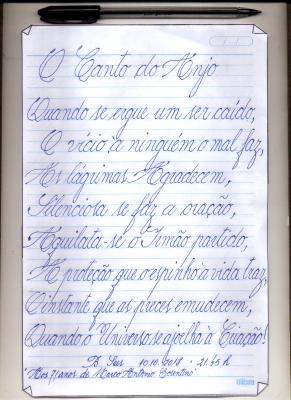 O Canto do Anjo
Quando se ergue um ser caído,
O vício a ninguém o mal faz,
As lágrimas Agradecem,
Silenciosa se faz a oração,
Aquilata-se o Irmão partido,
A proteção que o espinho à vida traz,
O instante que as preces emudecem,
Quando o Universo se ajoelha à Criação!
10.10.2018 - 21.45 h
"Aos 71 anos de Marco Antonio